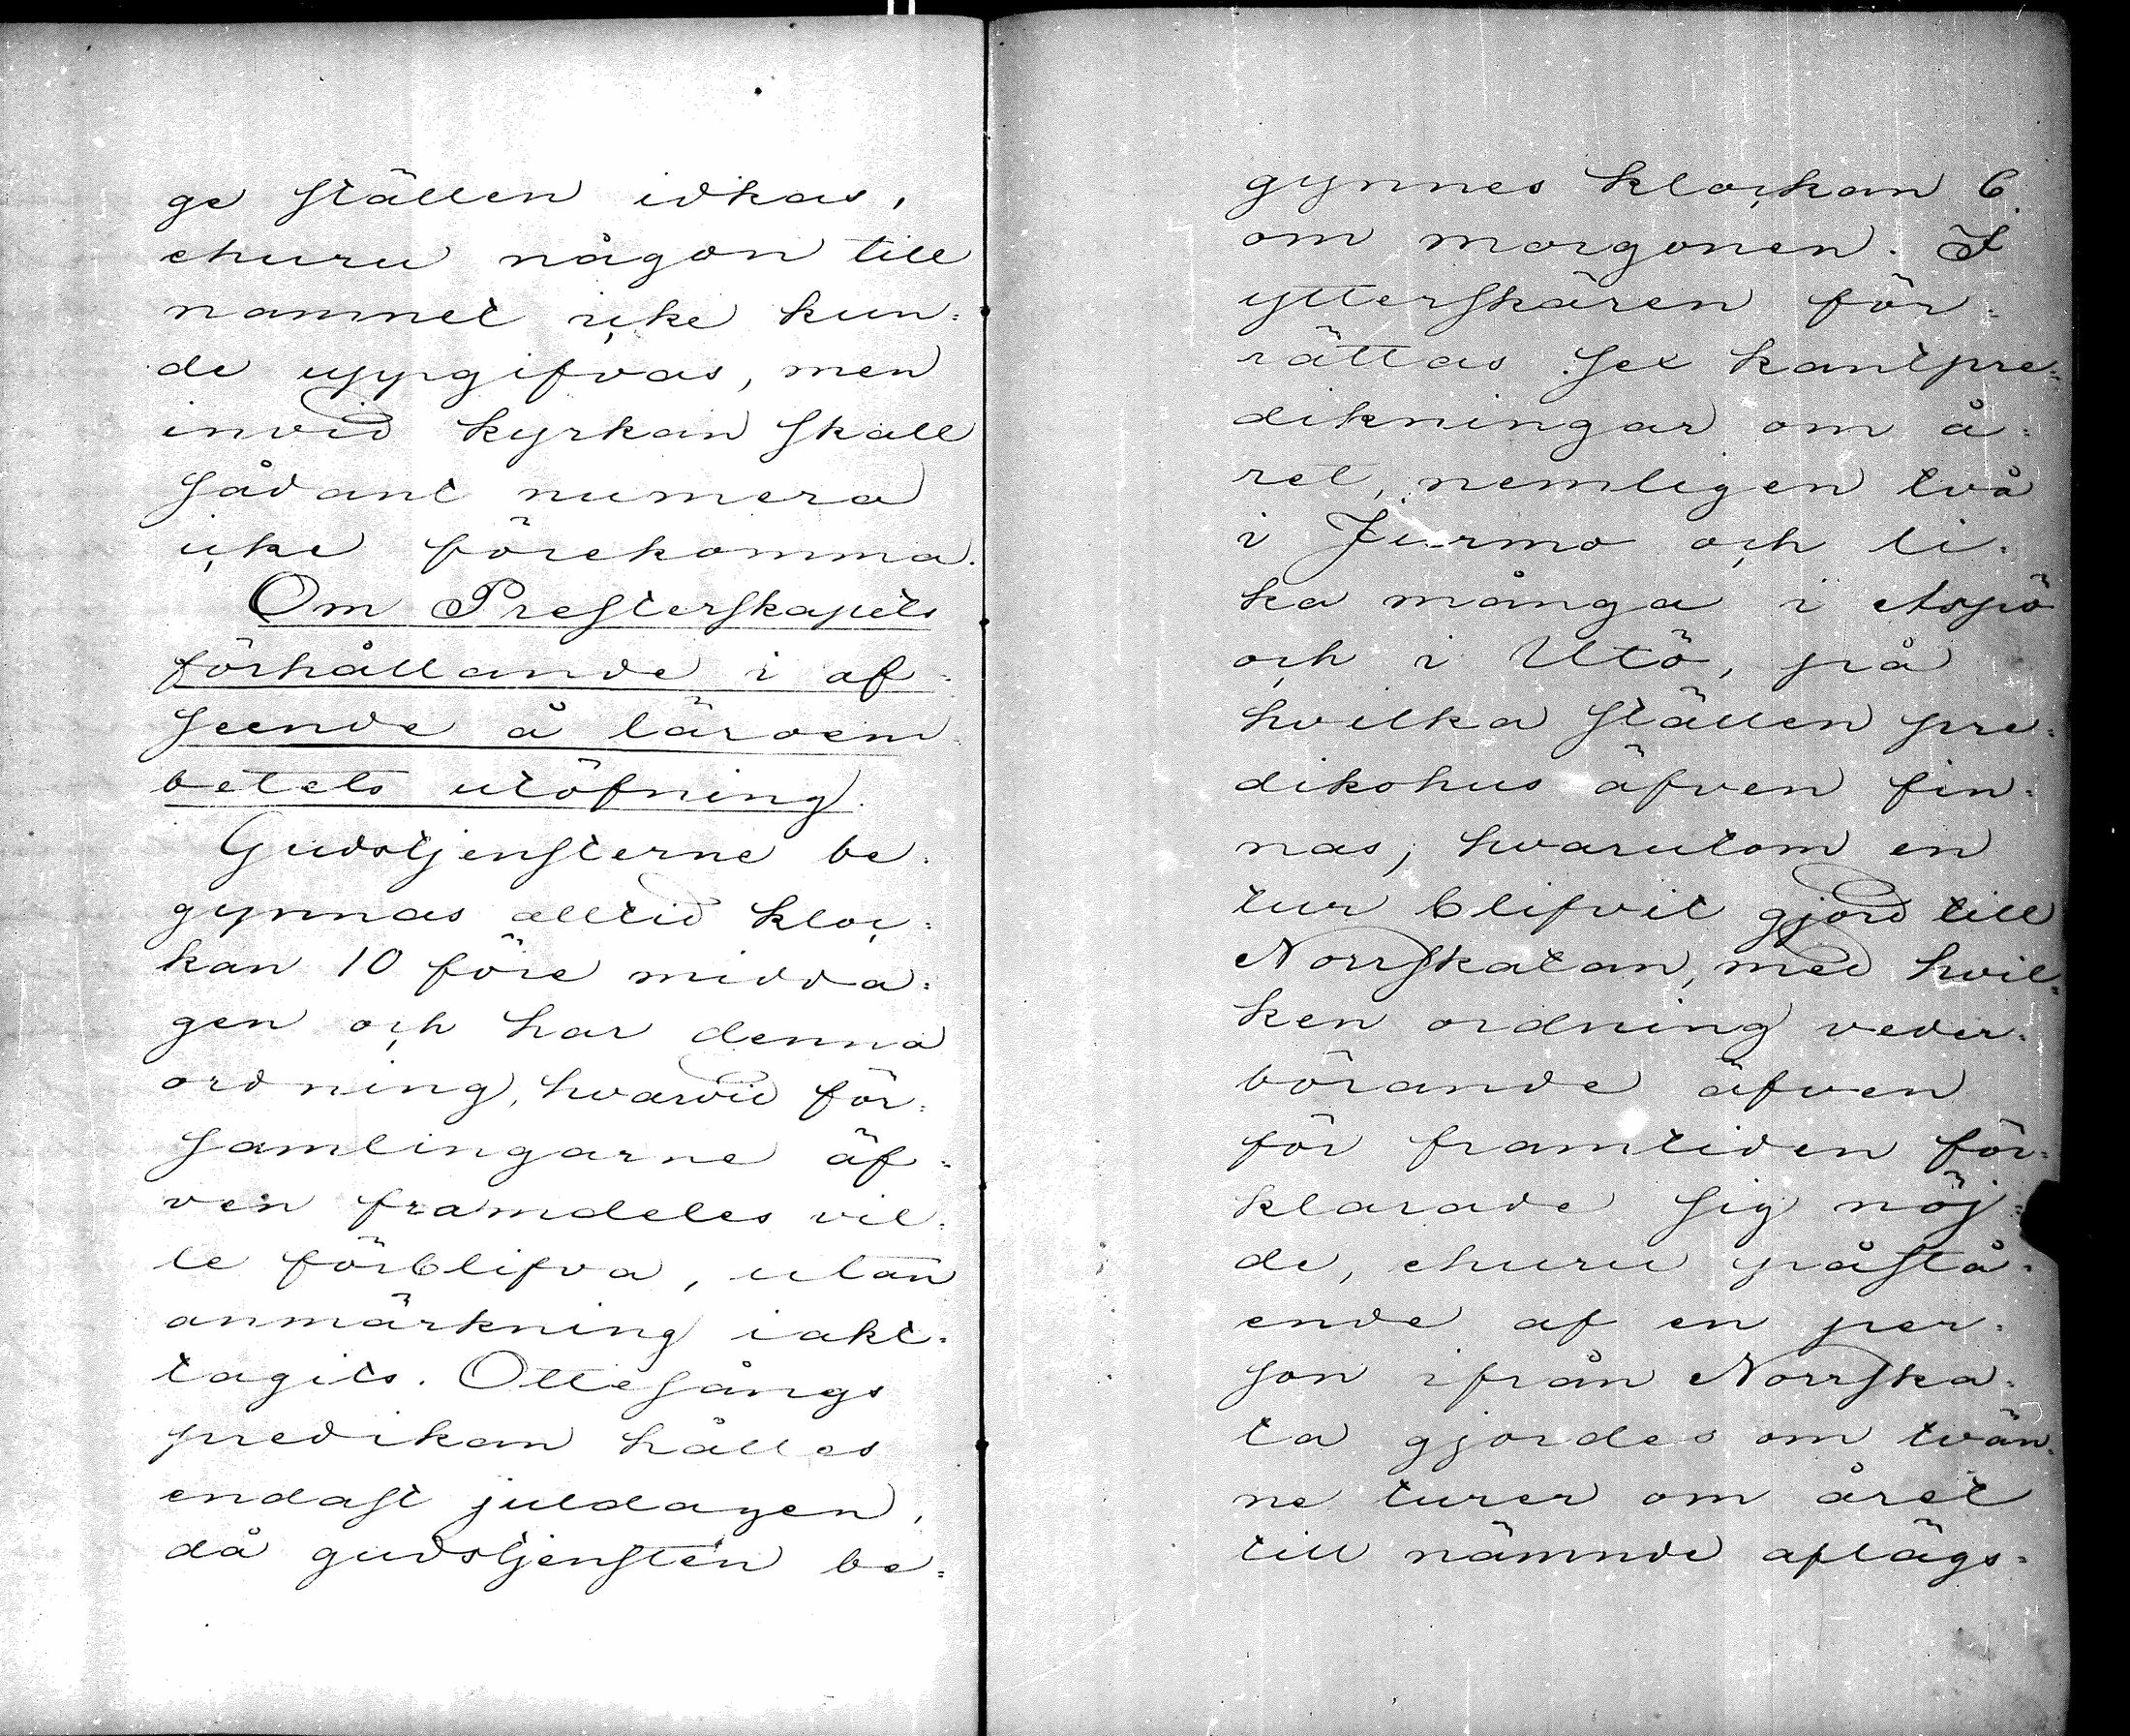 ge ställen idkas,
ehuru någon till
namnet icke kun=
de uppgifvas, men
invid kyrkan skall
sådant numera
icke förekomma.
Om Presterskapets
förhållande i af=
seende å läroem=
betets utöfning.
Gudstjensterne be=
gynnas alltid kloc=
kan 10 före midda=
gen och har denna
ordning, hvarvid för=
samlingarne äf=
ven framdeles vil=
le förblifva, utan
anmärkning iakt=
tagits. Ottesångs
predikan hålles
endast juldagen,
då gudstjensten be=
gynnes klockan 6.
om morgonen. I
ytterskären för=
rättas sex kantpre=
dikningar om å=
ret, nemligen två
i Jurmo och li=
ka många i Aspö
och i Utö, på
hvilka ställen pre=
dikohus äfven fin=
nas; hvarutom en
tur blifvit gjord till
Norrskatan, med hvil=
ken ordning veder=
börande äfven
för framtiden för=
klarade sig nöj=
de, ehuru påstå=
ende af en per=
son ifrån Norrska=
ta gjordes om tvän=
ne turer om året
till nämnde aflägs=